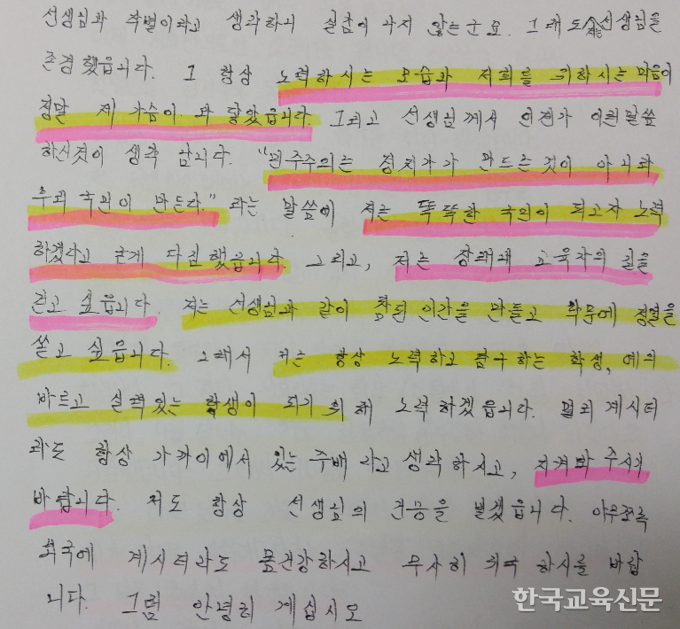 선생님과 작별이라고 생각하니 실감이 나지 않는군요. 그래도 저는 선생님을
존경했읍니다. 그 항상 노력하시는 모습과 저희를 위하시는 마음이
정말 제 가슴에 와 닿았읍니다. 그리고 선생님께서 언젠가 이런말씀
하신것이 생각 납니다. "민주주의는 정치가가 만드는것이 아니라
우리 국민이 만든다." 라는 말씀에 저는 똑똑한 국민이 되고자 노력
하겠다고 굳게 다짐했읍니다. 그리고, 저는 장래에 교육자의 길을
걷고 싶읍니다. 저는 선생님과 같이 참된 인간을 만들고 학문에 정열을
쏟고 싶읍니다. 그래서 저는 항상 노력하고 탐구하는 학생, 예의
바르고 실력있는 학생이 되기 위해 노력하겠읍니다. 멀리 계시더
라도 항상 가까이에서 있는 주배라고 생각하시고, 지켜봐 주시기
바랍니다. 저도 항상 선생님의 건승을 빌겠읍니다. 아무쪼록
외국에 계시더라도 몸건강하시고 무사히 귀국 하시를 바랍
니다. 그럼 안녕히 계십시오
한국교육신문